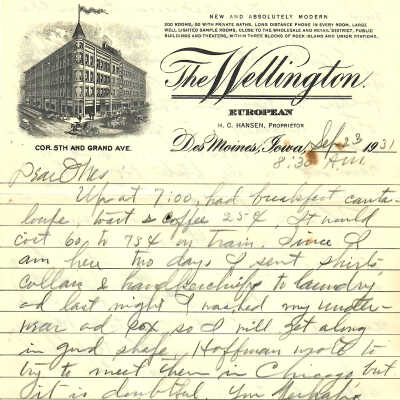 NEW AND ABSOLUTELY MODERN
200 ROOMS, 50 WITH PRIVATE BATHS, LONG DISTANCE PHONE IN EVERY ROOM, LARGE
WELL LIGHTED SAMPLE ROOMS, CLOSE TO THE WHOLESALE AND RETAIL DISTRICT, PUBLIC
BUILDINGS AND THEATERS, WITHIN THREE BLOCKS OF ROCK ISLAND AND UNION STATIONS.
The Wellington.
EUROPEAN
H. C. HANSEN, PROPRIETOR
COR. 5TH AND GRAND AVE.
Des Moines, Iowa, Sep 23 1931
8:30 A.M.
Dear
Up at 7:00, had breakfast canta-
loupe, toast & coffee 25¢ It would
cost 60 to 75¢ on train. Since I
am here two days I sent shirts
collars & handkerchiefs to laundry
ad last night I washed my under-
wear ad sox so I will get along
in good shape. Hoffman wrote to
try to meet them in Chicago but
it is doubtful. You